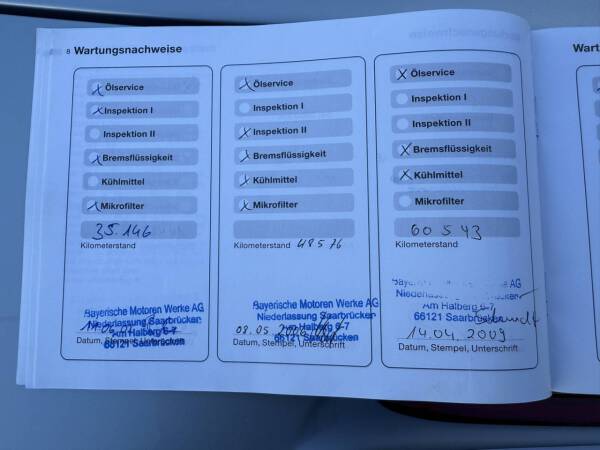 8 Wartungsnachweise
Ölservice
Inspektion I
Inspektion II
Bremsflüssigkeit
Kühlmittel
Mikrofilter
35.146
Kilometerstand
Bayerische Motoren Werke AG
Niederlassung Saarbrücken
Am Halberg 6-7
66121 Saarbrücken
Datum, Stempel, Unterschrift
Ölservice
Inspektion I
Inspektion II
Bremsflüssigkeit
Kühlmittel
Mikrofilter
Kilometerstand 48576
Bayerische Motoren Werke AG
Niederlassung Saarbrücken
08.05 Am Halberg 6-7
66121 Saarbrücken
Datum, Stempel, Unterschrift
Ölservice
Inspektion I
Inspektion II
Bremsflüssigkeit
Kühlmittel
Mikrofilter
60543
Kilometerstand
Werke AG
Am Halberg 6-7
66121 Saarbrücken
14.04.2009
Datum, Stempel, Unterschrift
Wart